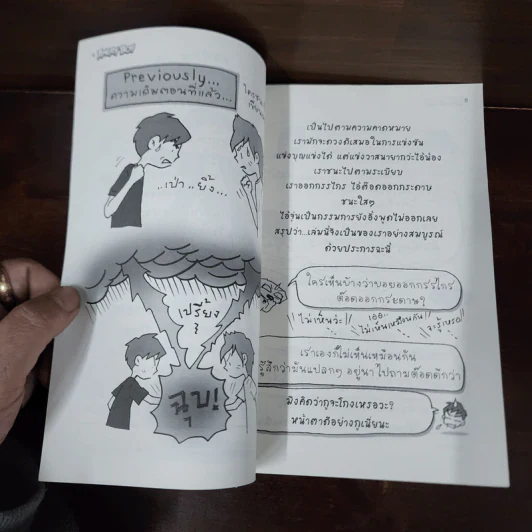 Previously...
ความเดิมตอนที่แล้ว...
..เป่า..ยิ้ง..
เปรี้ยง
!
ฉุบ!
เป็นไปตามความคาดหมาย
เรามักจะดวงดีเสมอในการแข่งขัน
แข่งบุญแข่งได้ แต่แข่งวาสนายากว่ะไอ้น้อง
เราชนะไปตามระเบียบ
เราออกกรรไกร ไอ้ต๊อดออกกระดาษ
ชนะใสๆ
ไอ้จุ่นเป็นกรรมการยังอึ้งพูดไม่ออกเลย
สรุปว่า...เล่มนี้จึงเป็นของเราอย่างสมบูรณ์
ด้วยประการฉะนี้
ใครเห็นบ้างว่าบอยออกกรรไกร
ต๊อดออกกระดาษ?
ไม่เห็นว่ะ
เออ..
ไม่เห็นเหมือนกัน
จะรู้เหรอ
เราเองก็ไม่เห็นเหมือนกัน
รู้สึกว่ามันแปลกๆ อยู่นา ไปถามต๊อดดีกว่า
มึงคิดว่ากูจะโกงเหรอวะ?
หน้าตาดีอย่างกูเนี่ยนะ